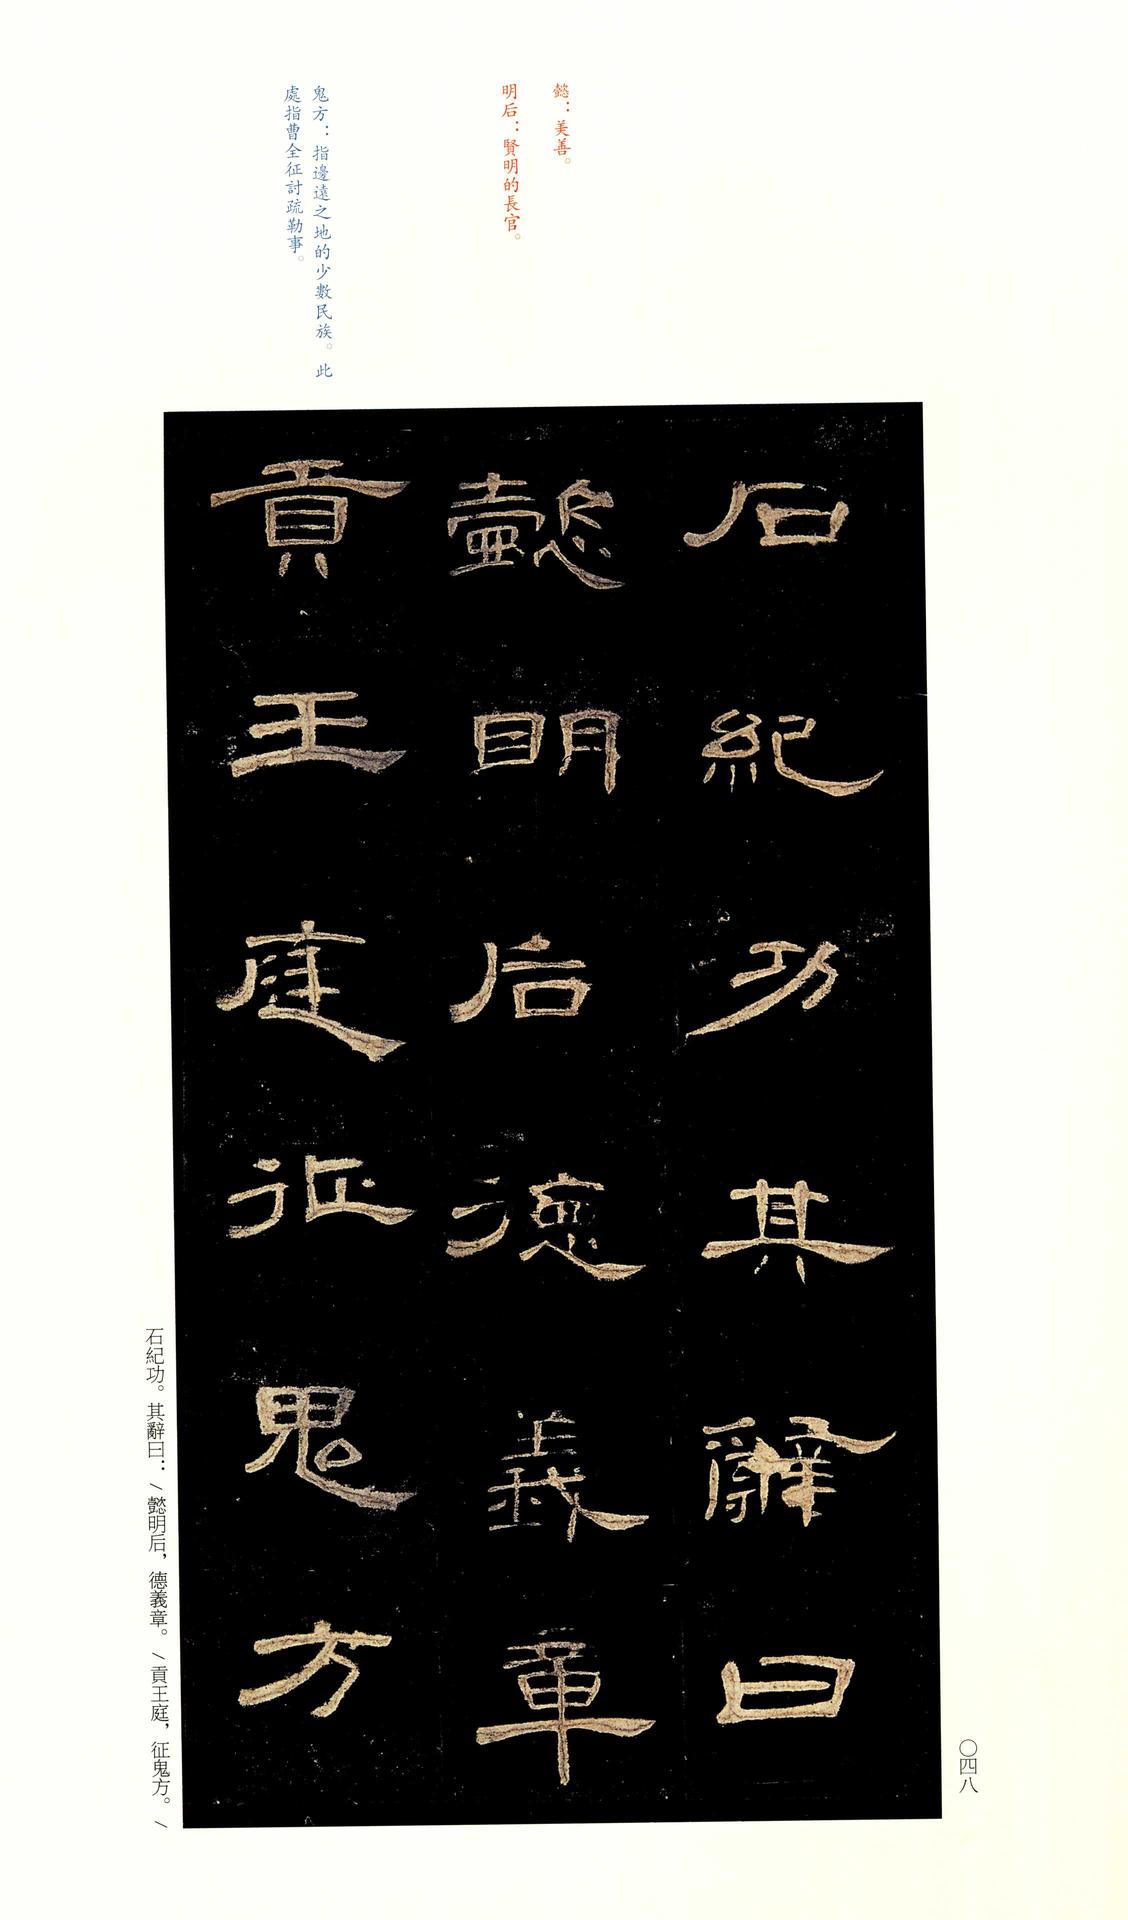 懿：美善。
明后：賢明的長官。
鬼方：指邊遠之地的少數民族。此
處指曹全征討疏勒事。
石紀功其辭曰
懿明后德義章
貢王庭征鬼方
石紀功。其辭曰：/懿明后，德義章。/貢王庭，征鬼方。/
〇四八